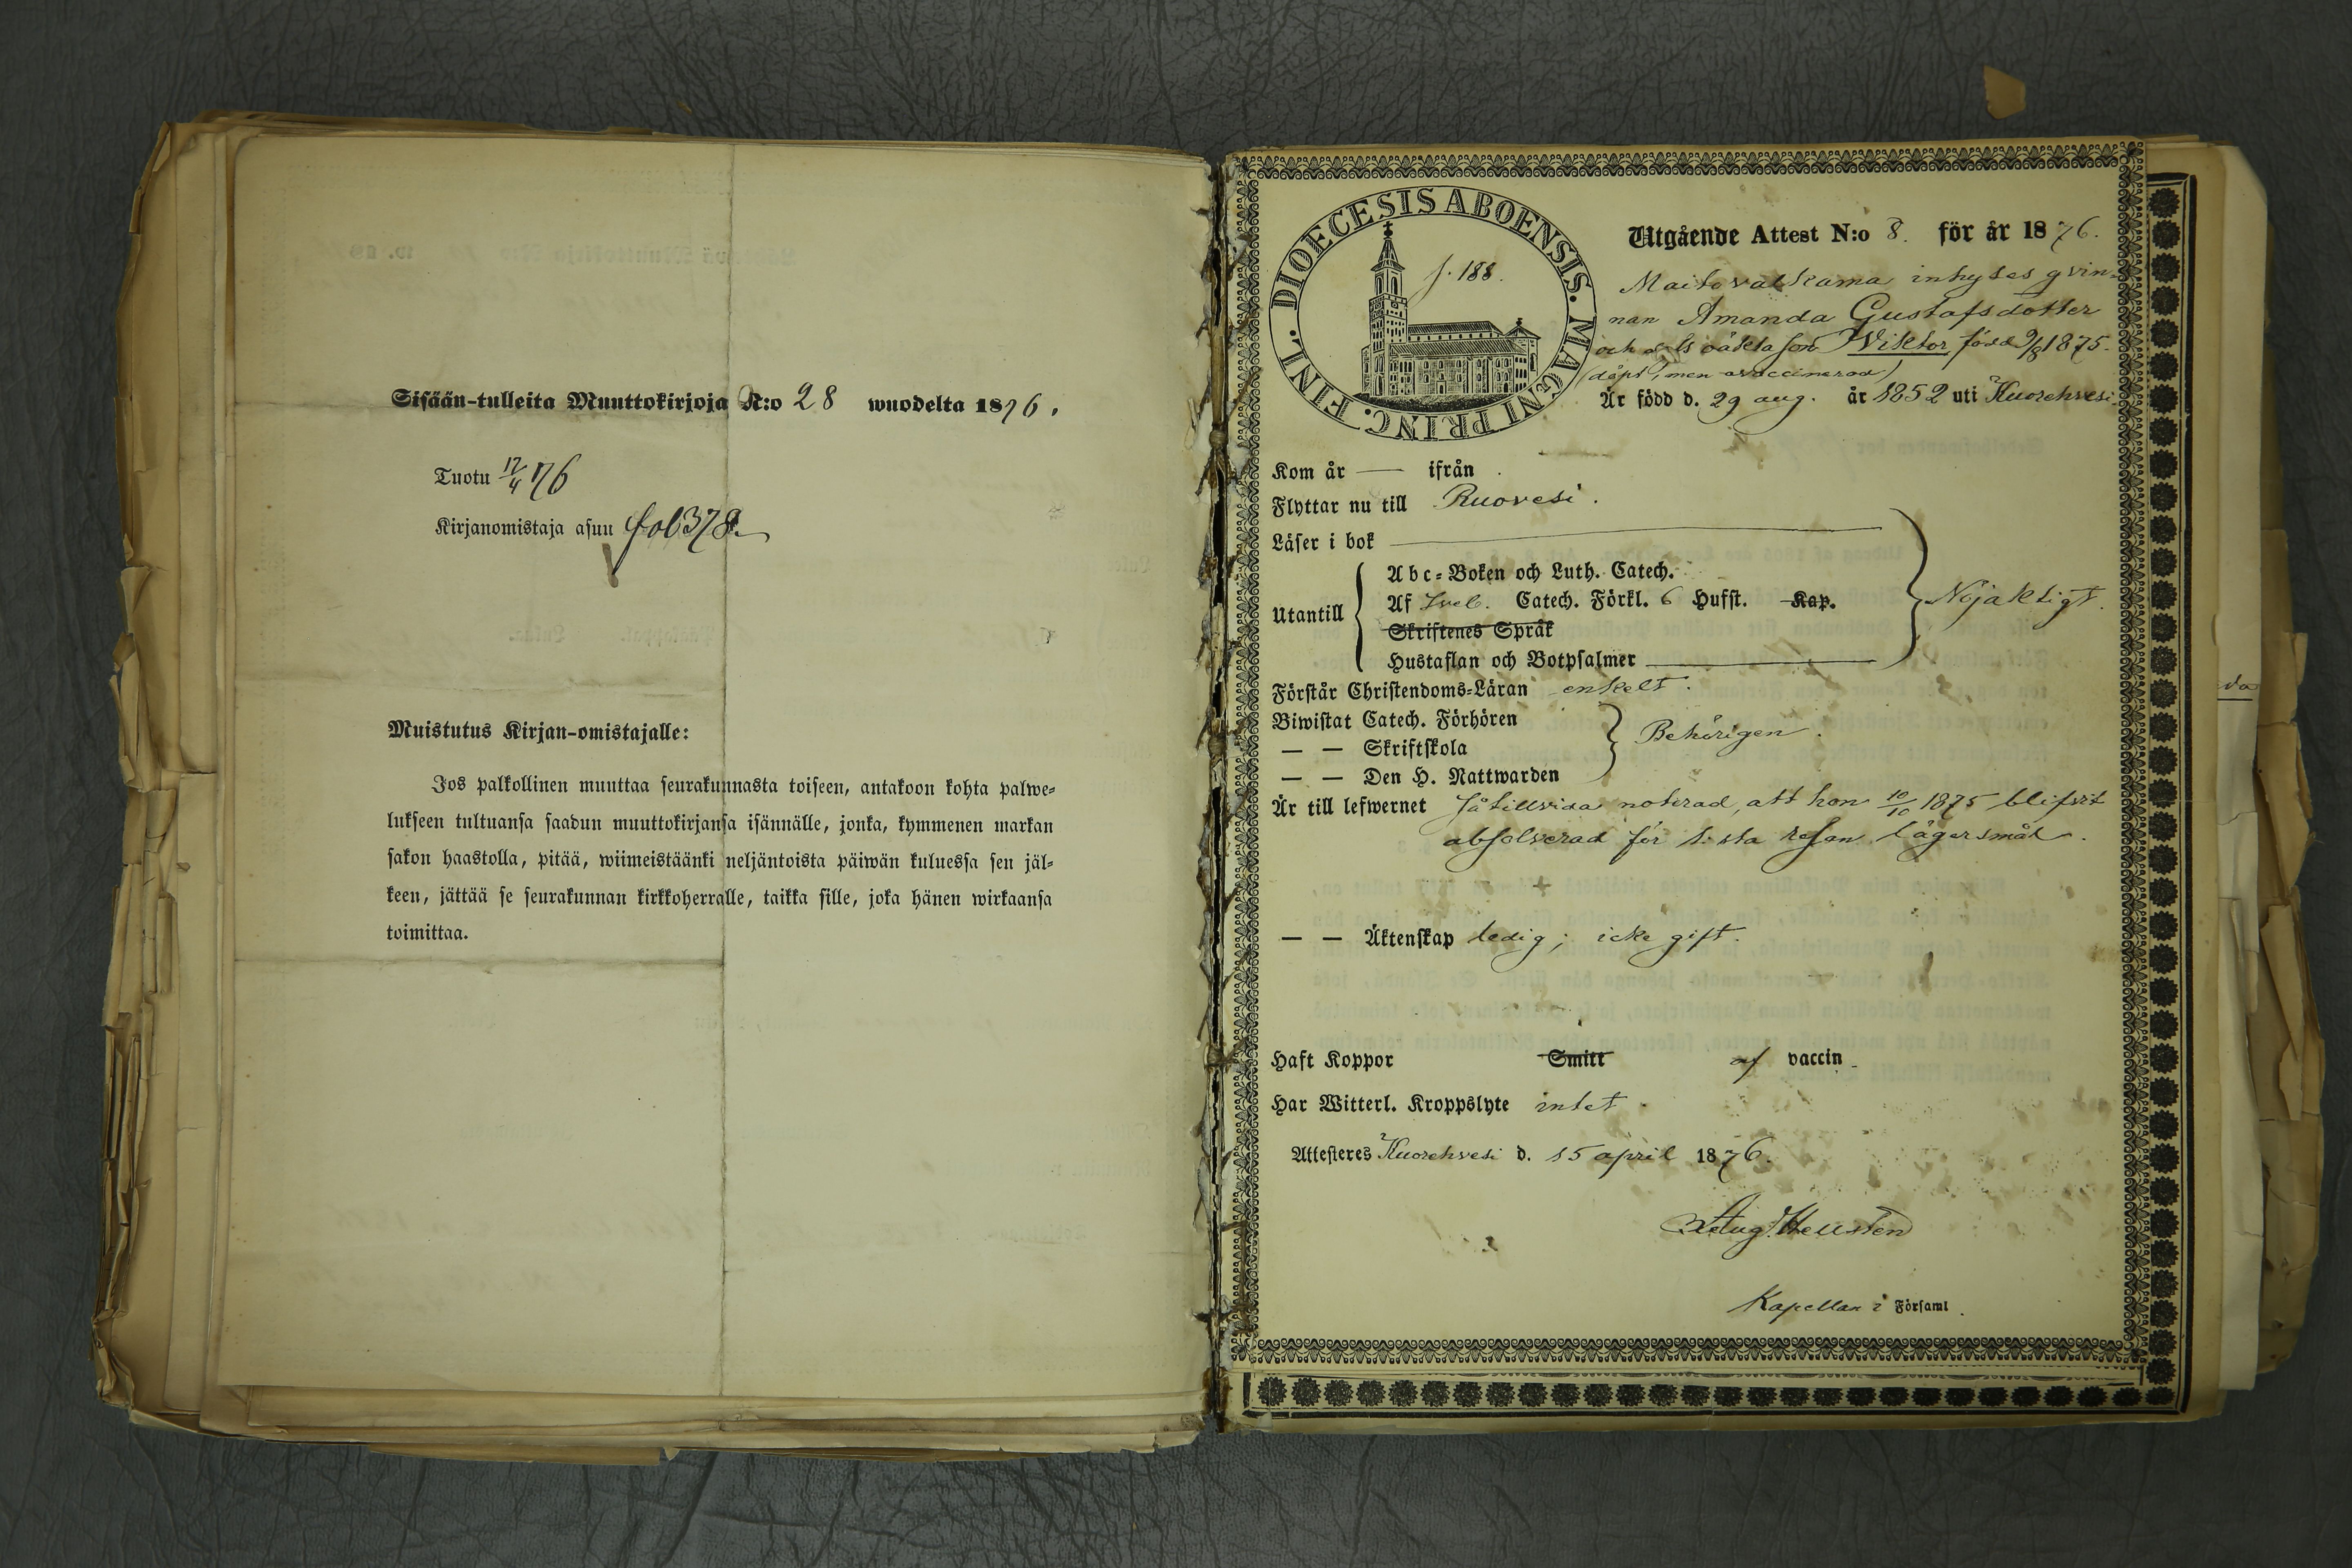 Sisään-tulleita Muuttokirjoja N:o 28 wuodelta 1876.
Tuotu 17/4 76
Kirjanomistaja asuu fol 378.
Muistutus Kirjan-omistajalle:
Jos palkollinen muuttaa seurakunnasta toiseen, antakoon kohta palwe-
lukseen tultuansa saadun muuttokirjansa isännälle, jonka, kymmenen markan
sakon haastolla, pitää, wiimeistäänki neljäntoista päiwän kuluessa sen jäl-
keen, jättää se seurakunnan kirkkoherralle, taikka sille, joka hänen wirkaansa
toimittaa.
DIOECESIS ABOENSIS. MAGNI PRINC. FINL.
f. 188.
Utgående Attest N:o 8. för år 1876.
Maitovalkama inhyses qvin-
nan Amanda Gustafsdotter
och oäkta son Wiktor född 9/8 1875.
(döpt, men ovaccinerad)
Är född d. 29 aug. år 1852 uti Kuorehvesi.
Kom år — ifrån
Flyttar nu till Ruovesi.
Läser i bok
Utantill
Abc-Boken och Luth. Catech.
Af Sveb. Catech. Förkl. 6 Hufst. Kap.
Skriftenes Språk
Hustaflan och Botpsalmer
Nöjaktigt.
Förstår Christendoms-Läran enkelt.
Biwistat Catech. Förhören
— — Skriftskola
— — Den H. Nattwarden
Behörigen.
Är till lefwernet såtillvida noterad, att hon 10/10 1875 blifvit
absolverad för 1:sta resan lägersmål.
— — Äktenskap ledig; icke gift.
Haft Koppor Smitt af vaccin.
Har Witterl. Kroppslyte intet.
Attesteres Kuorehvesi d. 15 april 1876.
Aug. Hellsten
Kapellan i Församl.